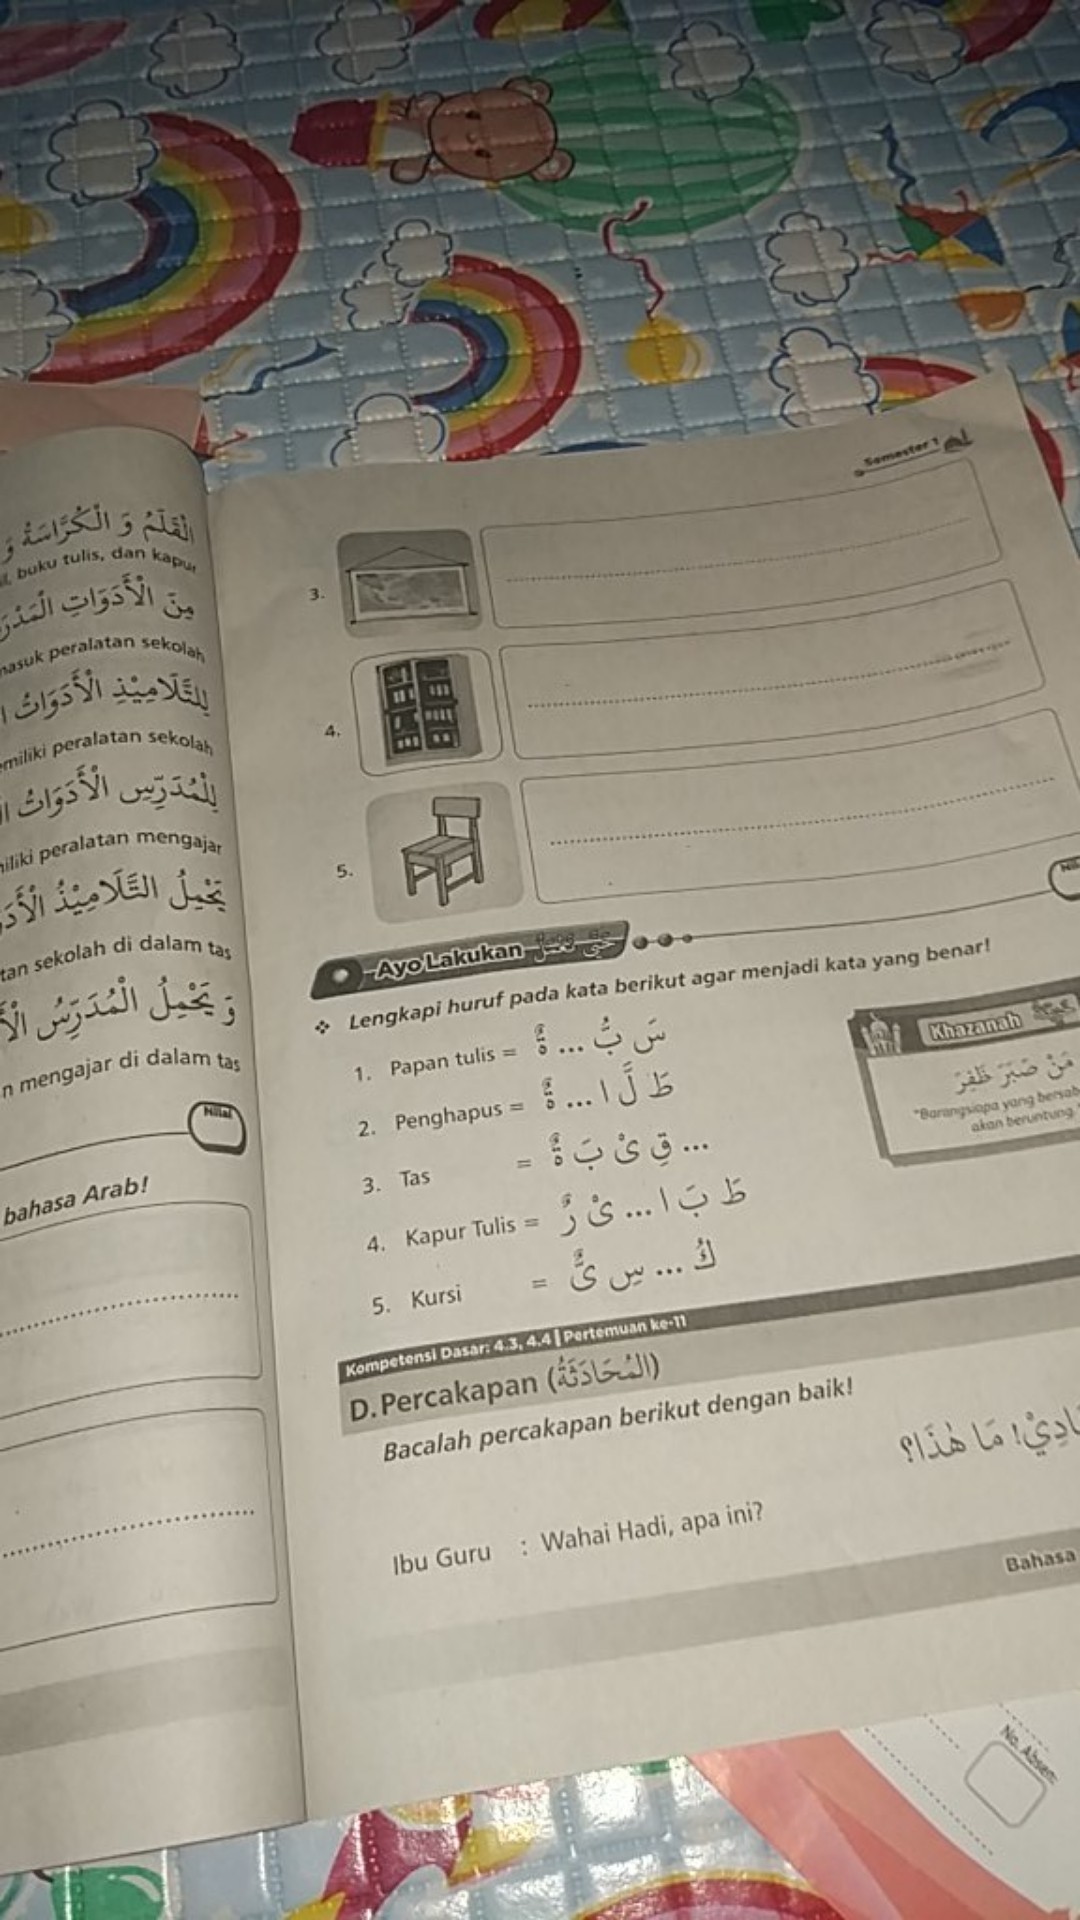 الْقَلَمُ وَ الْكُرَّاسَةُ وَ
buku tulis, dan kapur
مِنَ الْأَدَوَاتِ
masuk peralatan sekolah
لِلتَّلَامِيْذِ الْأَدَوَاتُ
miliki peralatan sekolah
لِلْمُدَرِّسِ الْأَدَوَاتُ
iliki peralatan mengajar
يَحْمِلُ التَّلَامِيْذُ
tan sekolah di dalam tas
وَ يَحْمِلُ الْمُدَرِّسُ
n mengajar di dalam tas
Nilai
bahasa Arab!
Semester 1
3.
4.
5.
Ayo Lakukan
Lengkapi huruf pada kata berikut agar menjadi kata yang benar!
1. Papan tulis = سَ بُّ ... ةٌ
2. Penghapus = طَ لَّ ا ... ةٌ
3. Tas = ... قِ يْ بَ ةٌ
4. Kapur Tulis = طَ بَ ا ... يْ رٌ
5. Kursi = كُ ... سِ يٌّ
Khazanah
مَنْ صَبَرَ ظَفِرَ
"Barangsiapa yang bersab
akan beruntung.
Kompetensi Dasar: 4.3, 4.4 | Pertemuan ke-11
D. Percakapan (الْمُحَادَثَةُ)
Bacalah percakapan berikut dengan baik!
ادِيْ! مَا هٰذَا؟
Ibu Guru : Wahai Hadi, apa ini?
Bahasa
No. Absen: